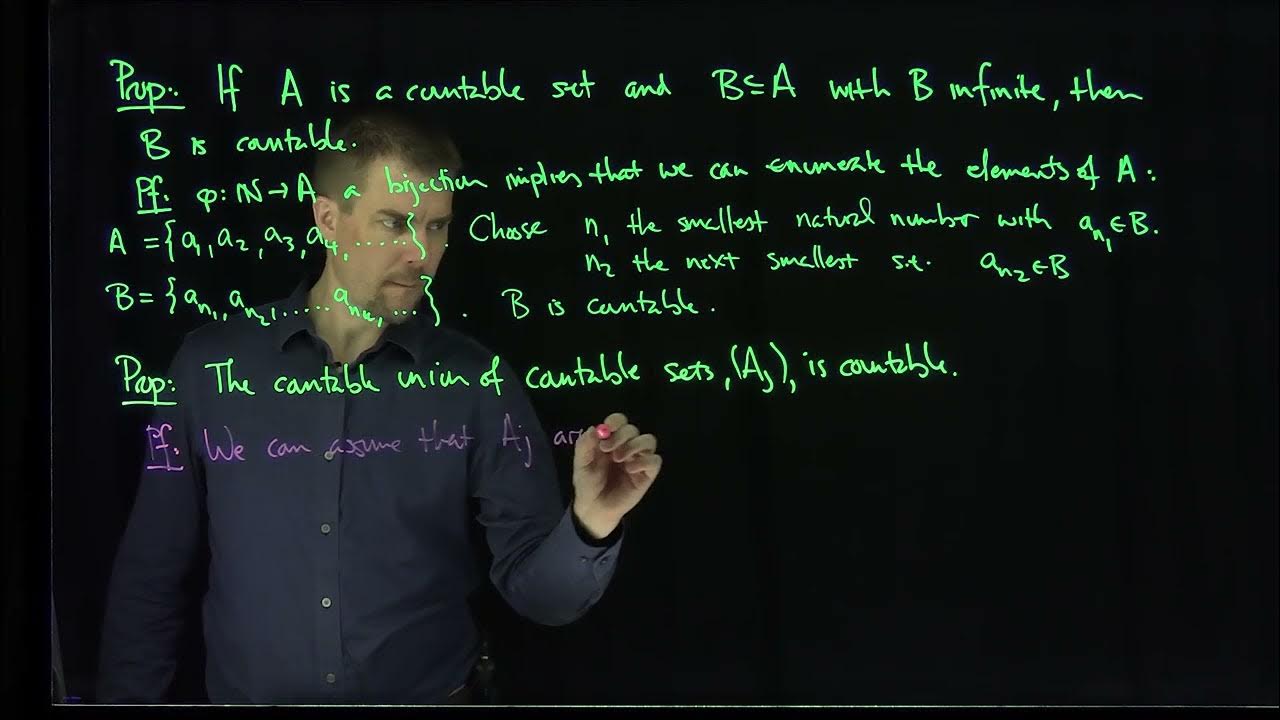 Prop: If A is a countable set and B ⊆ A with B infinite, then
B is countable.
Pf: φ: ℕ → A a bijection implies that we can enumerate the elements of A:
A = {a₁, a₂, a₃, a₄, ......}. Choose n₁ the smallest natural number with a_{n₁} ∈ B.
n₂ the next smallest s.t. a_{n₂} ∈ B
B = {a_{n₁}, a_{n₂}, ..... a_{n_k}, ...}. B is countable.
Prop: The countable union of countable sets, (A_j), is countable.
Pf: We can assume that A_j are